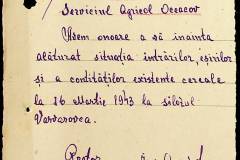 Serviciul Agricol Oceacov
Avem onoare a vă înainta
alăturat situația intrărilor, eșirilor
și a contităților existente cereale
la 16 Martie 1943 la silozul
Varvarovca.